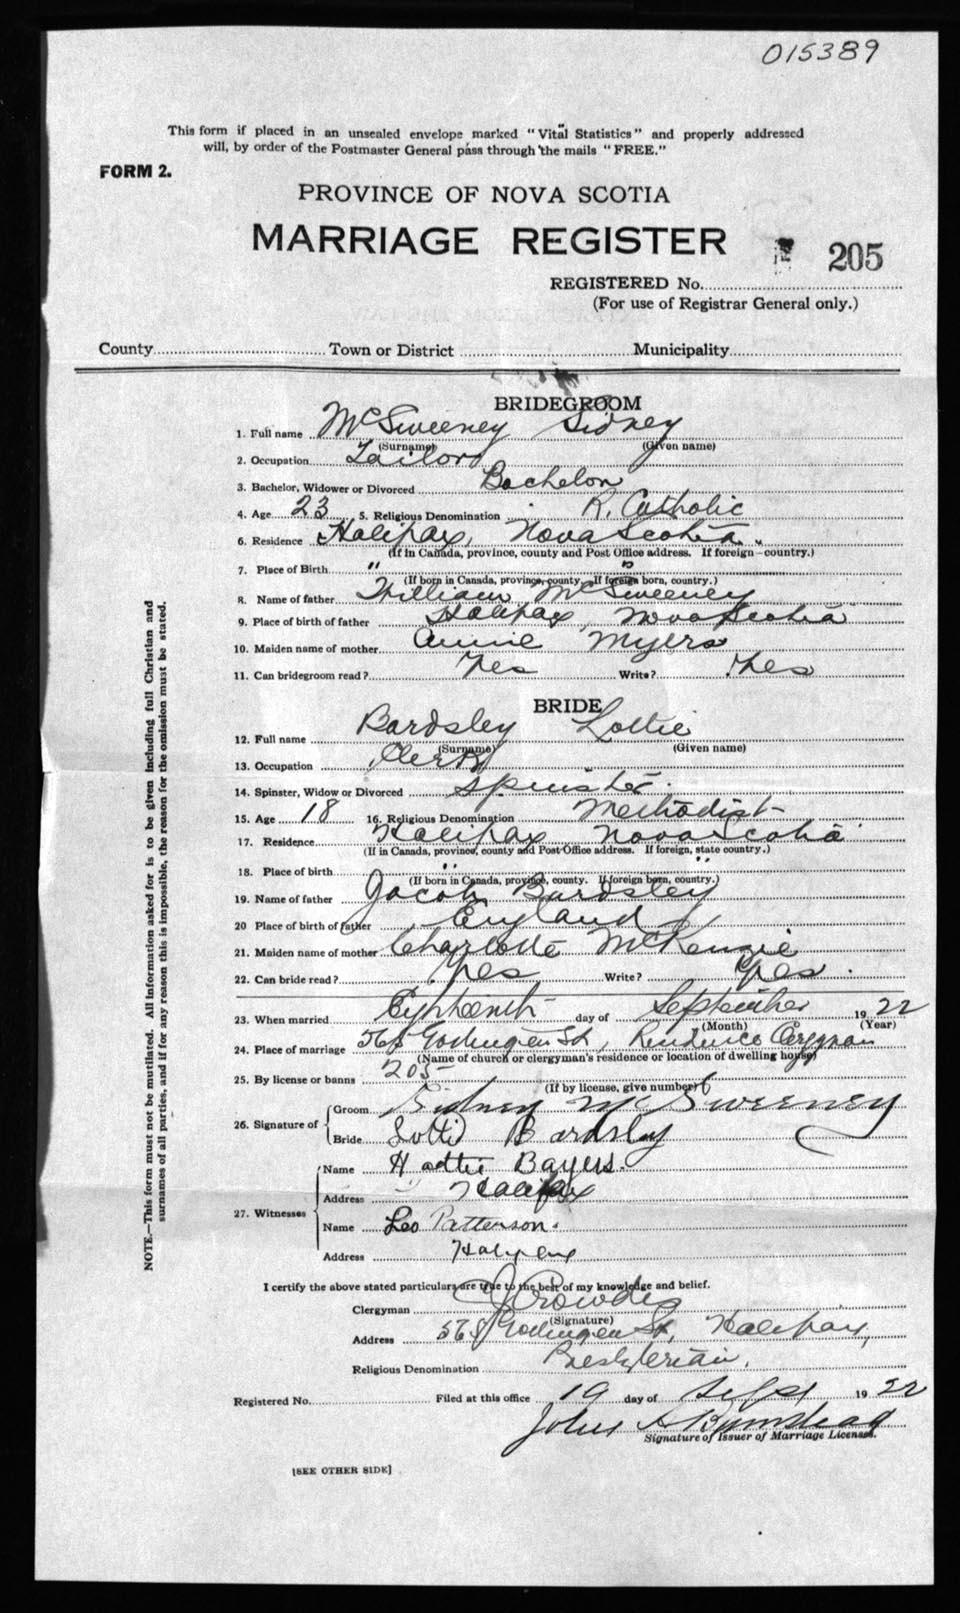 015389
This form if placed in an unsealed envelope marked "Vital Statistics" and properly addressed
will, by order of the Postmaster General pass through the mails "FREE."
FORM 2.
PROVINCE OF NOVA SCOTIA
MARRIAGE REGISTER
205
REGISTERED No.
(For use of Registrar General only.)
County Town or District Municipality
BRIDEGROOM
1. Full name McSweeney Sidney
(Surname) (Given name)
2. Occupation Tailor
3. Bachelor, Widower or Divorced Bachelor
4. Age 23 5. Religious Denomination R. Catholic
6. Residence Halifax, Nova Scotia.
(If in Canada, province, county and Post Office address. If foreign—country.)
7. Place of Birth " "
(If born in Canada, province, county. If foreign born, country.)
8. Name of father William McSweeney
9. Place of birth of father Halifax, Nova Scotia
10. Maiden name of mother Annie Myers
11. Can bridegroom read? Yes Write? Yes
BRIDE
12. Full name Bardsley Lottie
(Surname) (Given name)
13. Occupation Clerk
14. Spinster, Widow or Divorced Spinster
15. Age 18 16. Religious Denomination Methodist
17. Residence Halifax Nova Scotia
(If in Canada, province, county and Post Office address. If foreign, state country.)
18. Place of birth " "
(If born in Canada, province, county. If foreign born, country.)
19. Name of father Jacob Bardsley
20 Place of birth of father England
21. Maiden name of mother Charlotte McKenzie
22. Can bride read? Yes Write? Yes.
23. When married Eighteenth day of September 1922
(Month) (Year)
24. Place of marriage 565 Gottingen St,
(Name of church or clergyman's residence or location of dwelling house)
25. By license or banns 205
(If by license, give number)
26. Signature of
Groom Sidney McSweeney
Bride Lottie Bardsley
27. Witnesses
Name Hattie Bayers.
Address Halifax
Name Leo Patterson.
Address Halifax
I certify the above stated particulars are true to the best of my knowledge and belief.
Clergyman Crowdis
(Signature)
Address 565 Gottingen St, Halifax,
Religious Denomination Presbyterian,
Registered No. Filed at this office 19 day of Sept 1922
John
Signature of Issuer of Marriage Licenses.
[SEE OTHER SIDE]
NOTE.—This form must not be mutilated. All information asked for is to be given including full Christian and
surnames of all parties, and if for any reason this is impossible, the reason for the omission must be stated.